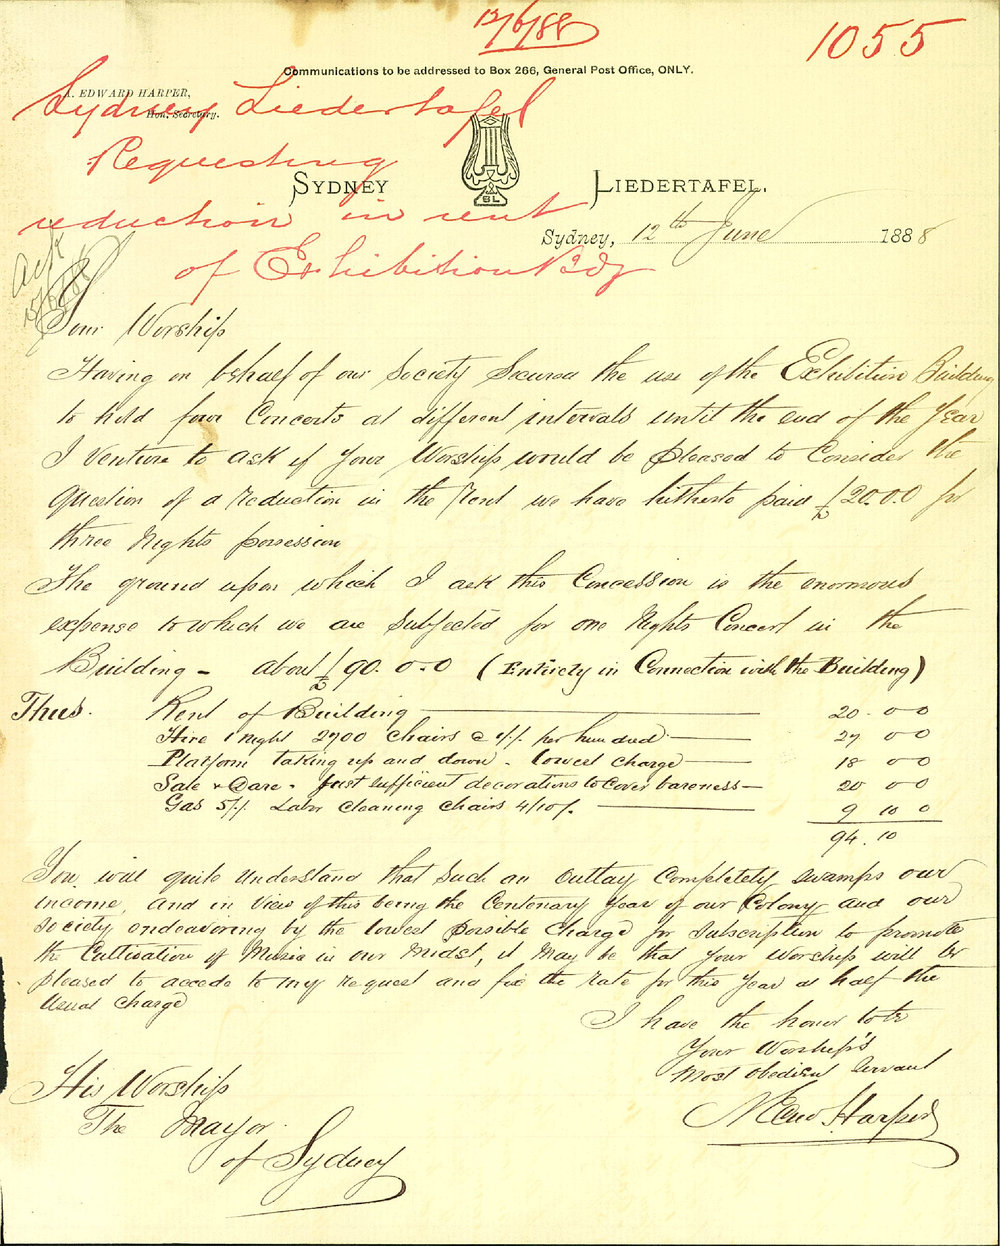 12/6/88
1055
Communications to be addressed to Box 266, General Post Office, ONLY.
A. EDWARD HARPER,
Hon. Secretary.
Sydney Liedertafel
Requesting
reduction in rent
of Exhibition Bdg
SYDNEY LIEDERTAFEL.
BL
Sydney, 12th June 1888
Ack
15/6/88
Your Worship
Having on behalf of our Society Secured the use of the Exhibition Building
to hold four Concerts at different intervals until the end of the Year
I venture to ask if Your Worship would be pleased to Consider the
question of a reduction in the rent we have hitherto paid £20.0.0 for
three Nights possession
The ground upon which I ask this Concession is the enormous
expense to which we are Subjected for one Nights Concert in the
Building - about £90.0.0 (Entirely in Connection with the Building)
Thus. Rent of Building 20.0.0
Hire 1 night 2700 Chairs @ 1/. per hundred 27 0 0
Platform taking up and down - lowest charge 18 0 0
Sale & Dare - Just sufficient decorations to cover bareness 20 0 0
Gas 5/. Labor Cleaning Chairs 4/10/. 9 10 0
94.10
You will quite understand that such an outlay completely swamps our
income, and in view of this being the Centenary Year of our Colony and our
Society endeavoring by the lowest possible Charge for Subscription to promote
the Cultivation of Music in our Midst, it may be that Your Worship will be
pleased to accede to my request and fix the rate for this Year at half the
usual charge
I have the honor to be
Your Worship's
Most obedient Servant
A Edw Harper
His Worship
The Mayor
of Sydney